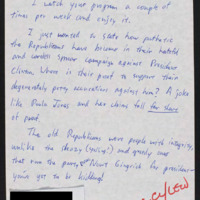 I watch your program a couple of
times per week and enjoy it.
I just wanted to state how pathetic
the Republicans have become in their hateful
and careless smear campaign against President
Clinton. Where is their proof to support their
degenerately petty accusations against him? A joke
like Paula Jones and her claims fall far short
of proof.
The old Republicans were people with integrity,
unlike the sleazy and greedy ones
that run the party. Newt Gingrich for president
you've got to be kidding!